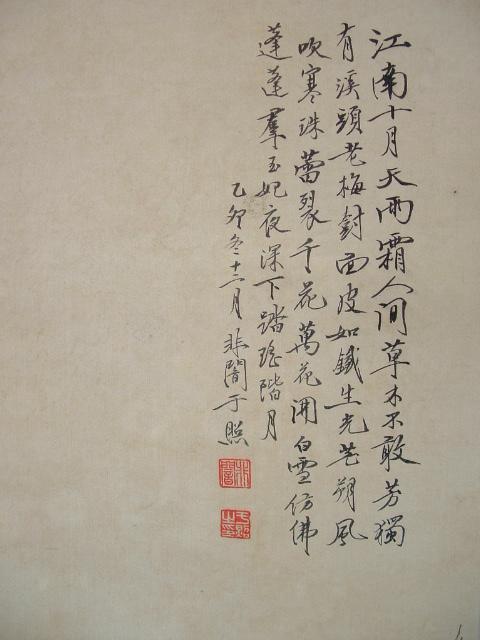 江南十月天雨霜人间草木不敢芳獨
有溪頭老梅對面皮如鐵生光芒朔風
吹寒珠蕾裂千花萬花開白雪仿佛
蓬蓬羣玉妃夜深下踏瑤階月
乙卯冬十二月非闇于照
非闇
于照之印